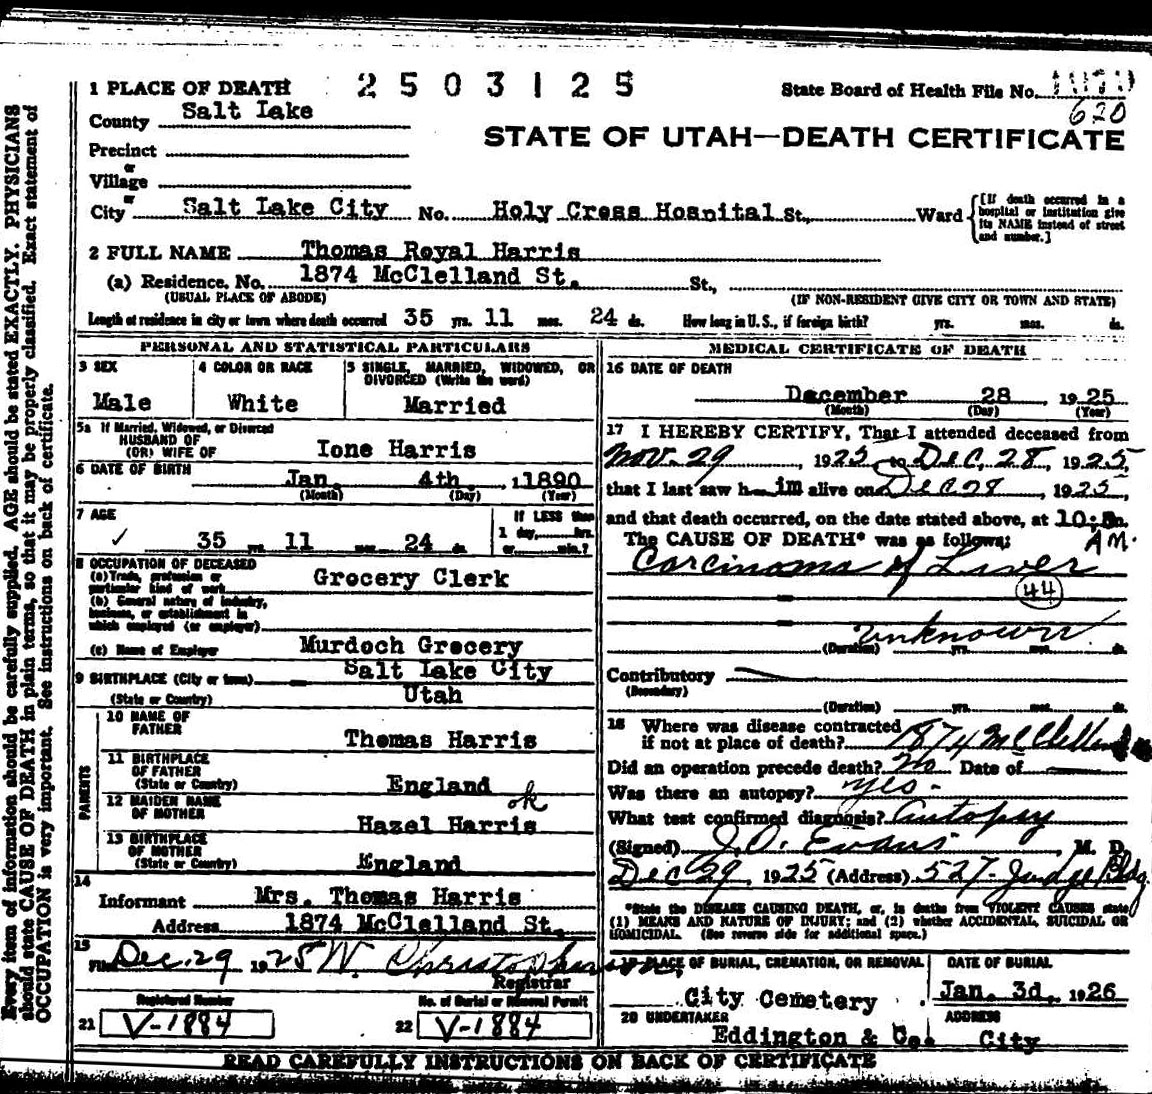 1 PLACE OF DEATH 2503125 State Board of Health File No.
620
County Salt Lake
STATE OF UTAH—DEATH CERTIFICATE
Precinct
or
Village
or
City Salt Lake City No. Holy Cross Hospital St., Ward [If death occurred in a hospital or institution give its NAME instead of street and number.]
2 FULL NAME Thomas Royal Harris
(a) Residence. No. 1874 McClelland St. St.,
(USUAL PLACE OF ABODE) (IF NON-RESIDENT GIVE CITY OR TOWN AND STATE)
Length of residence in city or town where death occurred 35 yrs. 11 mos. 24 ds. How long in U.S., if foreign birth? yrs. mos. ds.
PERSONAL AND STATISTICAL PARTICULARS
3 SEX
Male
4 COLOR OR RACE
White
5 SINGLE, MARRIED, WIDOWED, OR
DIVORCED (Write the word)
Married
5a If Married, Widowed, or Divorced
HUSBAND OF
(OR) WIFE OF Ione Harris
6 DATE OF BIRTH
Jan. 4th, 1890
(Month) (Day) (Year)
7 AGE
35 yrs. 11 mos. 24 ds.
If LESS than
1 day, hrs.
or min.?
8 OCCUPATION OF DECEASED
(a) Trade, profession or
particular kind of work Grocery Clerk
(b) General nature of industry,
business, or establishment in
which employed (or employer)
(c) Name of Employer Murdoch Grocery
9 BIRTHPLACE (City or town) Salt Lake City
(State or Country) Utah
PARENTS
10 NAME OF
FATHER Thomas Harris
11 BIRTHPLACE
OF FATHER
(State or Country) England
12 MAIDEN NAME
OF MOTHER Hazel Harris ok
13 BIRTHPLACE
OF MOTHER
(State or Country) England
14
Informant Mrs. Thomas Harris
Address 1874 McClelland St.
15
Filed Dec. 29 1925 W. Christopherson
Registrar
Registered Number
21 V-1884
No. of Burial or Removal Permit
22 V-1884
MEDICAL CERTIFICATE OF DEATH
16 DATE OF DEATH
December 28 1925
(Month) (Day) (Year)
17 I HEREBY CERTIFY, That I attended deceased from
Nov. 29, 1925 to Dec. 28, 1925,
that I last saw him alive on Dec 28, 1925,
and that death occurred, on the date stated above, at 10: m.
A.M.
The CAUSE OF DEATH* was as follows:
Carcinoma of Liver
44
unknown
(Duration) yrs. mos. ds.
Contributory
(Secondary)
(Duration) yrs. mos. ds.
18 Where was disease contracted
if not at place of death? 1874 McClelland
Did an operation precede death? No Date of
Was there an autopsy? yes -
What test confirmed diagnosis? Autopsy
(Signed) J.O. Evans, M. D.
Dec 29, 1925 (Address) 527- Judge Bldg.
*State the DISEASE CAUSING DEATH, or, in deaths from VIOLENT CAUSES state
(1) MEANS AND NATURE OF INJURY; and (2) whether ACCIDENTAL, SUICIDAL OR
HOMICIDAL. (See reverse side for additional space.)
19 PLACE OF BURIAL, CREMATION, OR REMOVAL
City Cemetery
DATE OF BURIAL
Jan. 3d, 1926
20 UNDERTAKER
Eddington & Co.
ADDRESS
City
READ CAREFULLY INSTRUCTIONS ON BACK OF CERTIFICATE
Every item of information should be carefully supplied. AGE should be stated EXACTLY. PHYSICIANS
should state CAUSE OF DEATH in plain terms, so that it may be properly classified. Exact statement of
OCCUPATION is very important. See instructions on back of certificate.